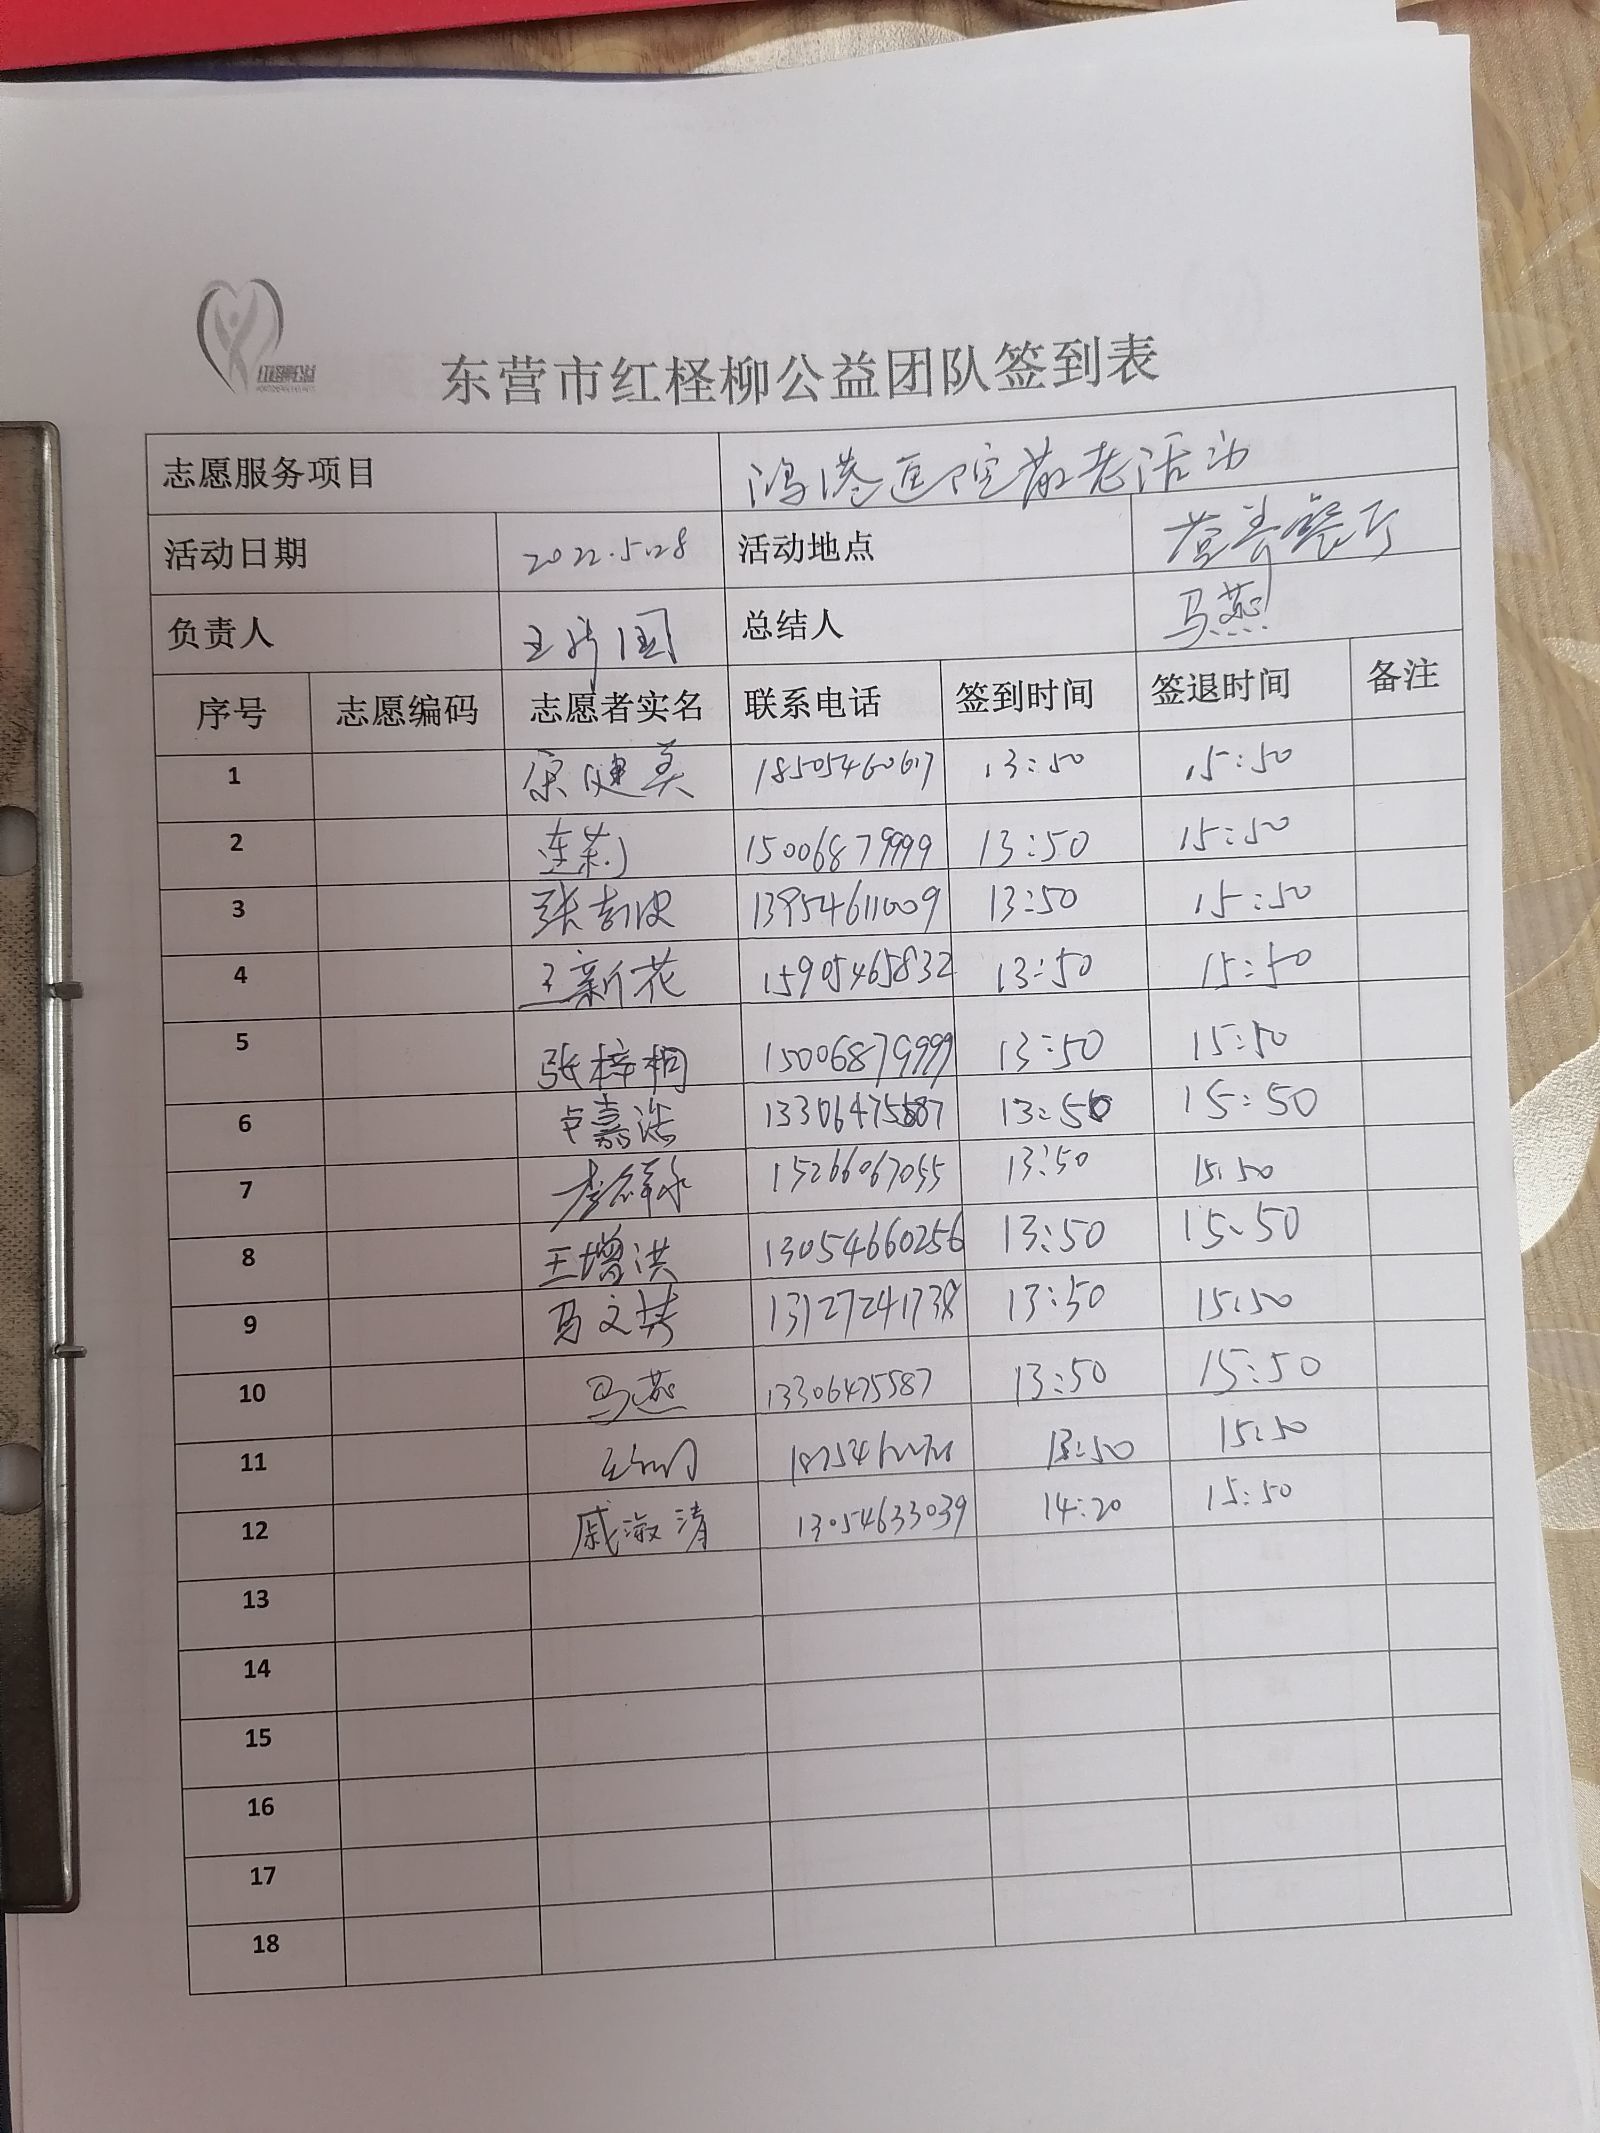 东营市红柽柳公益团队签到表
志愿服务项目 鸿港医院敬老活动
活动日期 2022.5.28 活动地点 营养餐厅
负责人 总结人 马燕
序号 志愿编码 志愿者实名 联系电话 签到时间 签退时间 备注
1 宋健美 18505460617 13:50 15:50
2 连莉 15006879999 13:50 15:50
3 张吉波 13954611009 13:50 15:50
4 王新花 15905465832 13:50 15:50
5 张梓桐 15006879999 13:50 15:50
6 卢嘉浩 13306475587 13:50 15:50
7 15266067055 13:50 15:50
8 王增洪 13054660256 13:50 15:50
9 马文 13127241738 13:50 15:50
10 马燕 13306475587 13:50 15:50
11 13:50 15:50
12 戚淑清 13054633039 14:20 15:50
13
14
15
16
17
18